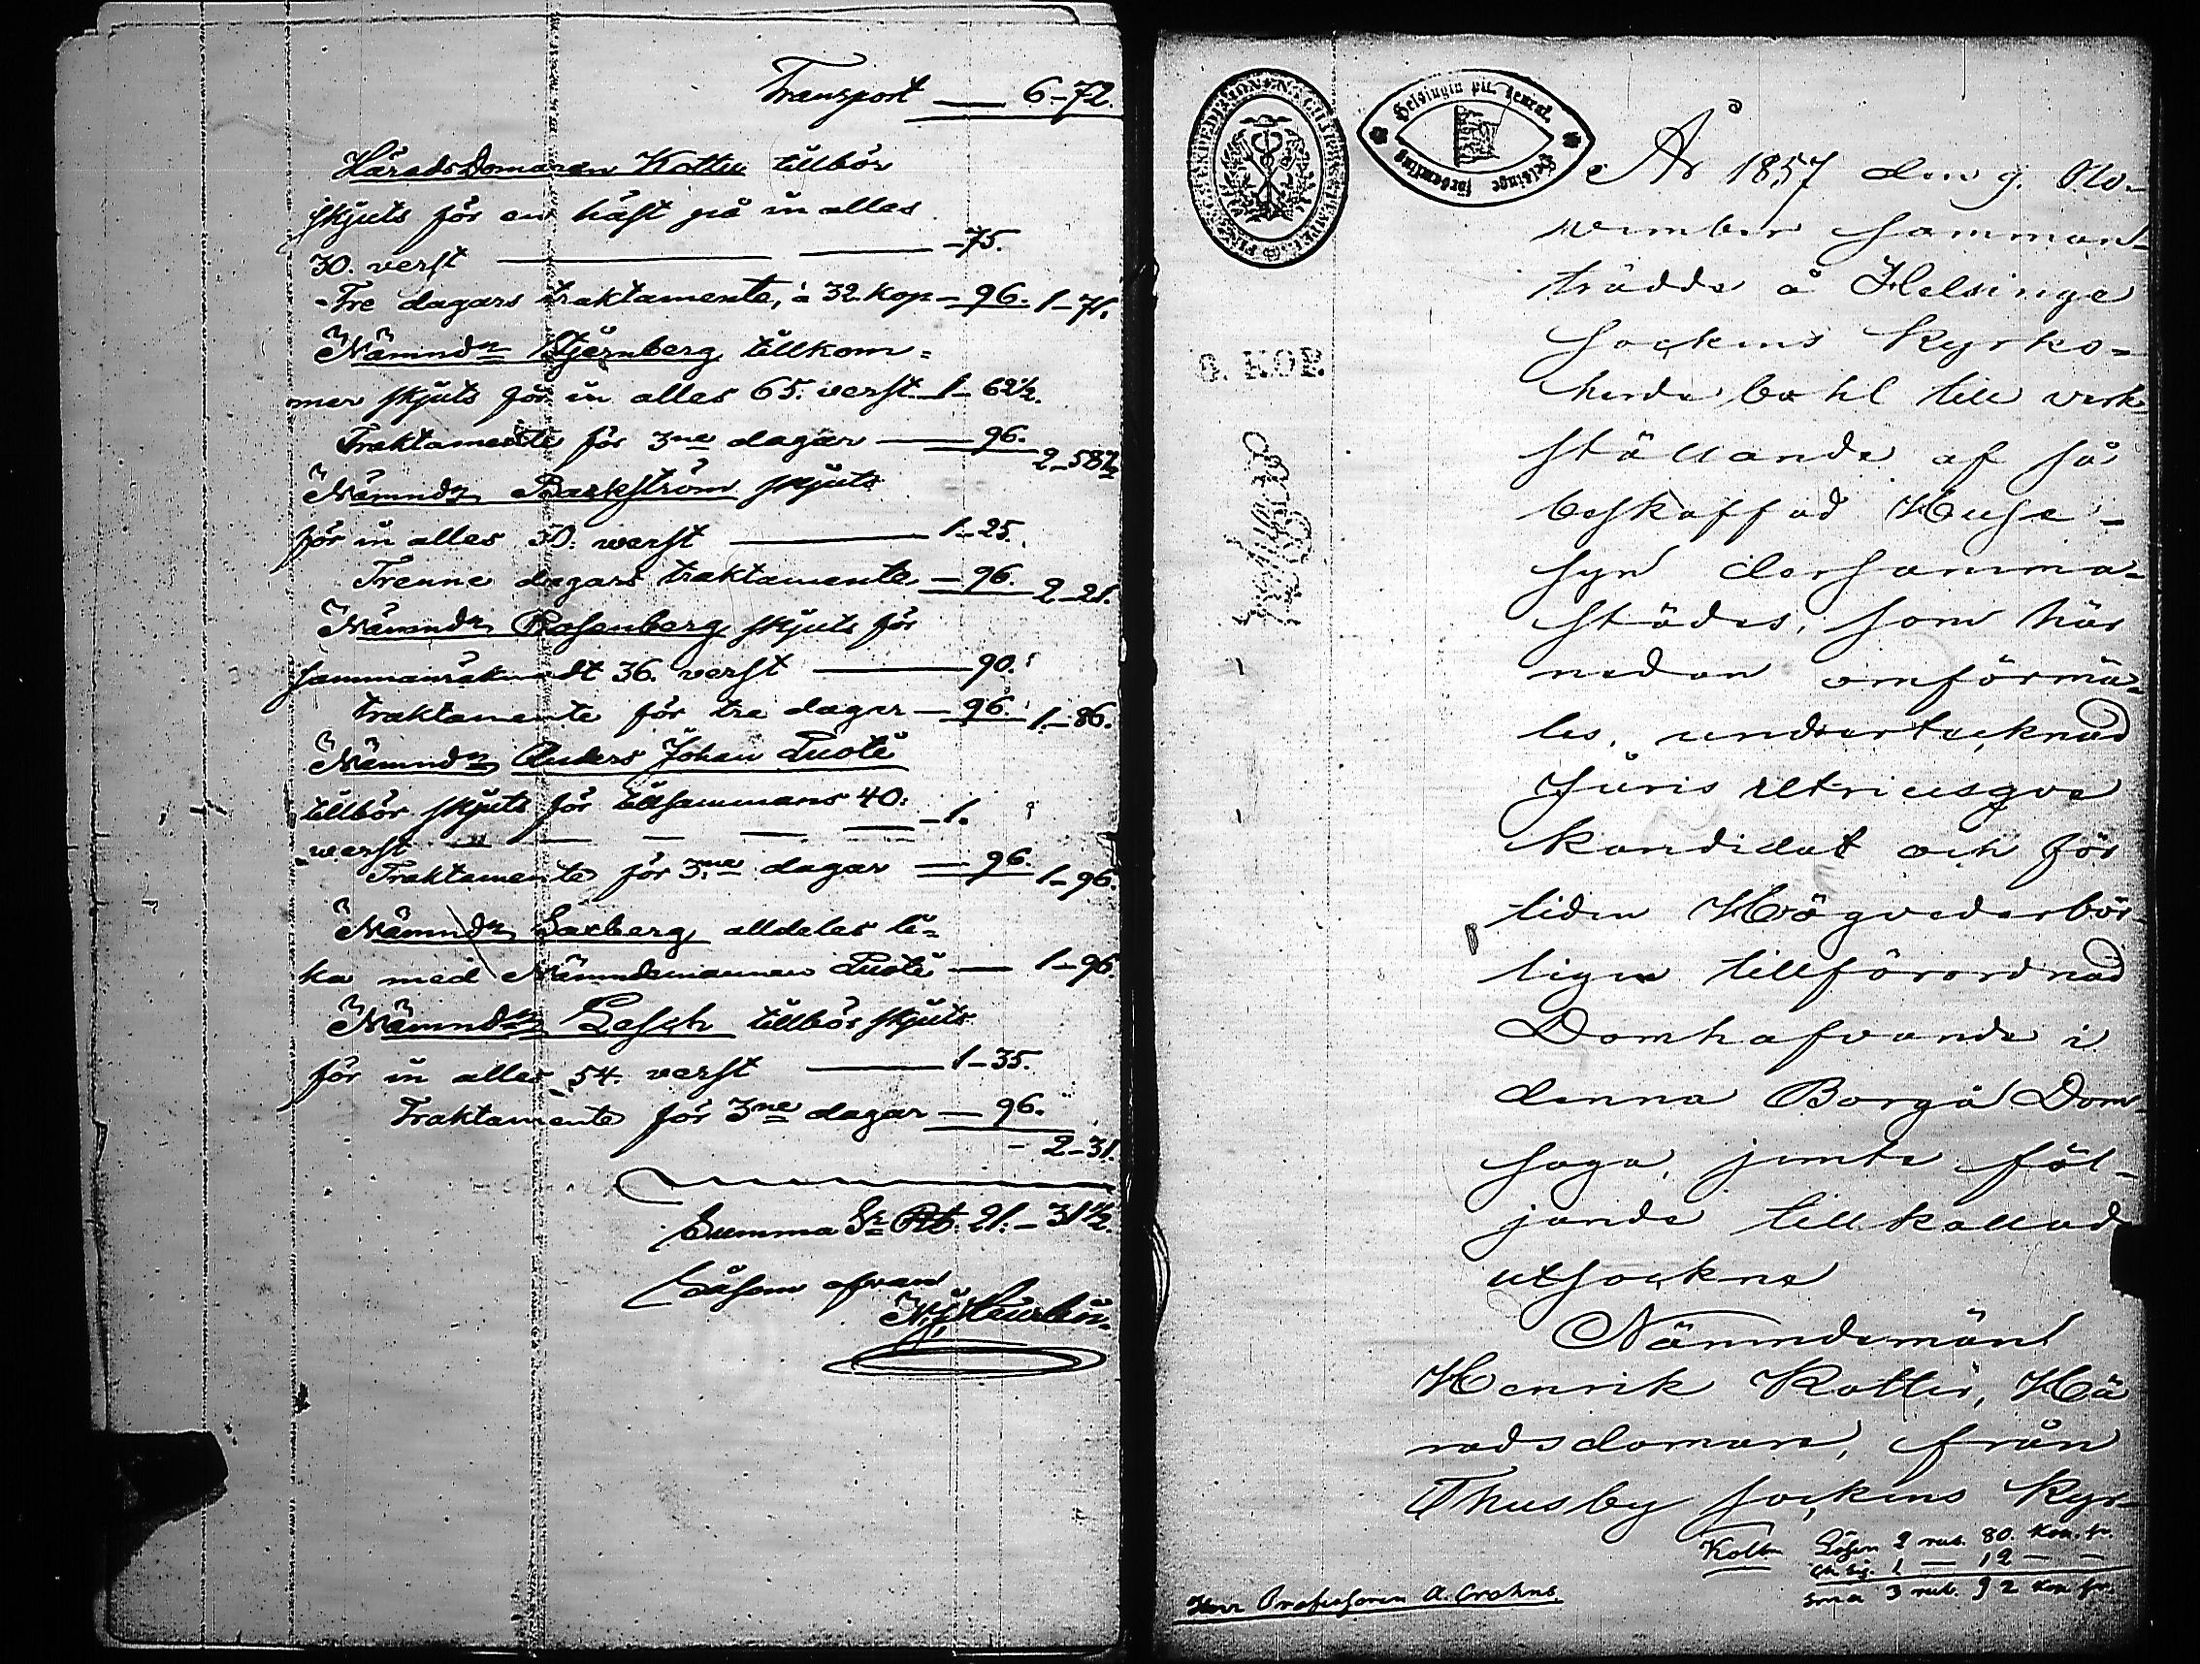 Transport — 6-72.
HäradsDomaren Kotter tillbör
skjuts för en häst på in alles
30. verst — -75.
Tre dagars traktamente, à 32. kop — 96. 1-71.
Nämndn Stjernberg tillkom=
mer skjuts för in alles 65. verst. 1-62½.
Traktamente för 3ne dagar — 96. 2-58½
Nämndn Backström skjuts
för in alles 50. werst — 1-25.
Trenne dagars traktamente — 96. 2-21.
Nämndn Rosenberg skjuts för
sammanräknadt 36. verst — 90.
traktamente för tre dagar — 96. 1-86.
Nämndn Anders Johan Tuote
tillbör skjuts för tillsammans 40.
werst — 1.
Traktamente för 3ne dagar — 96. 1-96.
Nämndn Saxberg alldeles li=
ka med Nämndemannen Tuote — 1-96
Nämndn Lesch tillbör skjuts
för in alles 54. verst — 1-35.
Traktamente för 3ne dagar — 96.
- 2-31.
Summa Sr Rb. 21. - 31½.
Såsom ofvan
FINSK. EXPEDITIONEN. CHARTÆ
Helsingin pit.
Helsinge församling
6. KOP.
År 1857 den 9. No-
vember samman-
trädde å Helsinge
sockens Kyrko-
herde bohl till verk-
ställande af så
beskaffad Huse-
syn dersamma-
städes, som här
nedan omförmä-
les, undertecknad
Juris utriusque
kandidat och för
tiden Högvederbör-
ligen tillförordnad
Domhafvande i
denna Borgå Dom-
saga, jemte föl-
jande tillkallade
utsockne
Nämndemän
Henrik Kotter, Hä
radsdomare, från
Thusby sockens Kyr-
Kotter Lösen 2 rub. 80. kop. sr.
Ch. sig. 1 — 12 — —
Sma 3 rub. 92 kop sr.
Herr Professoren A. Crohns.